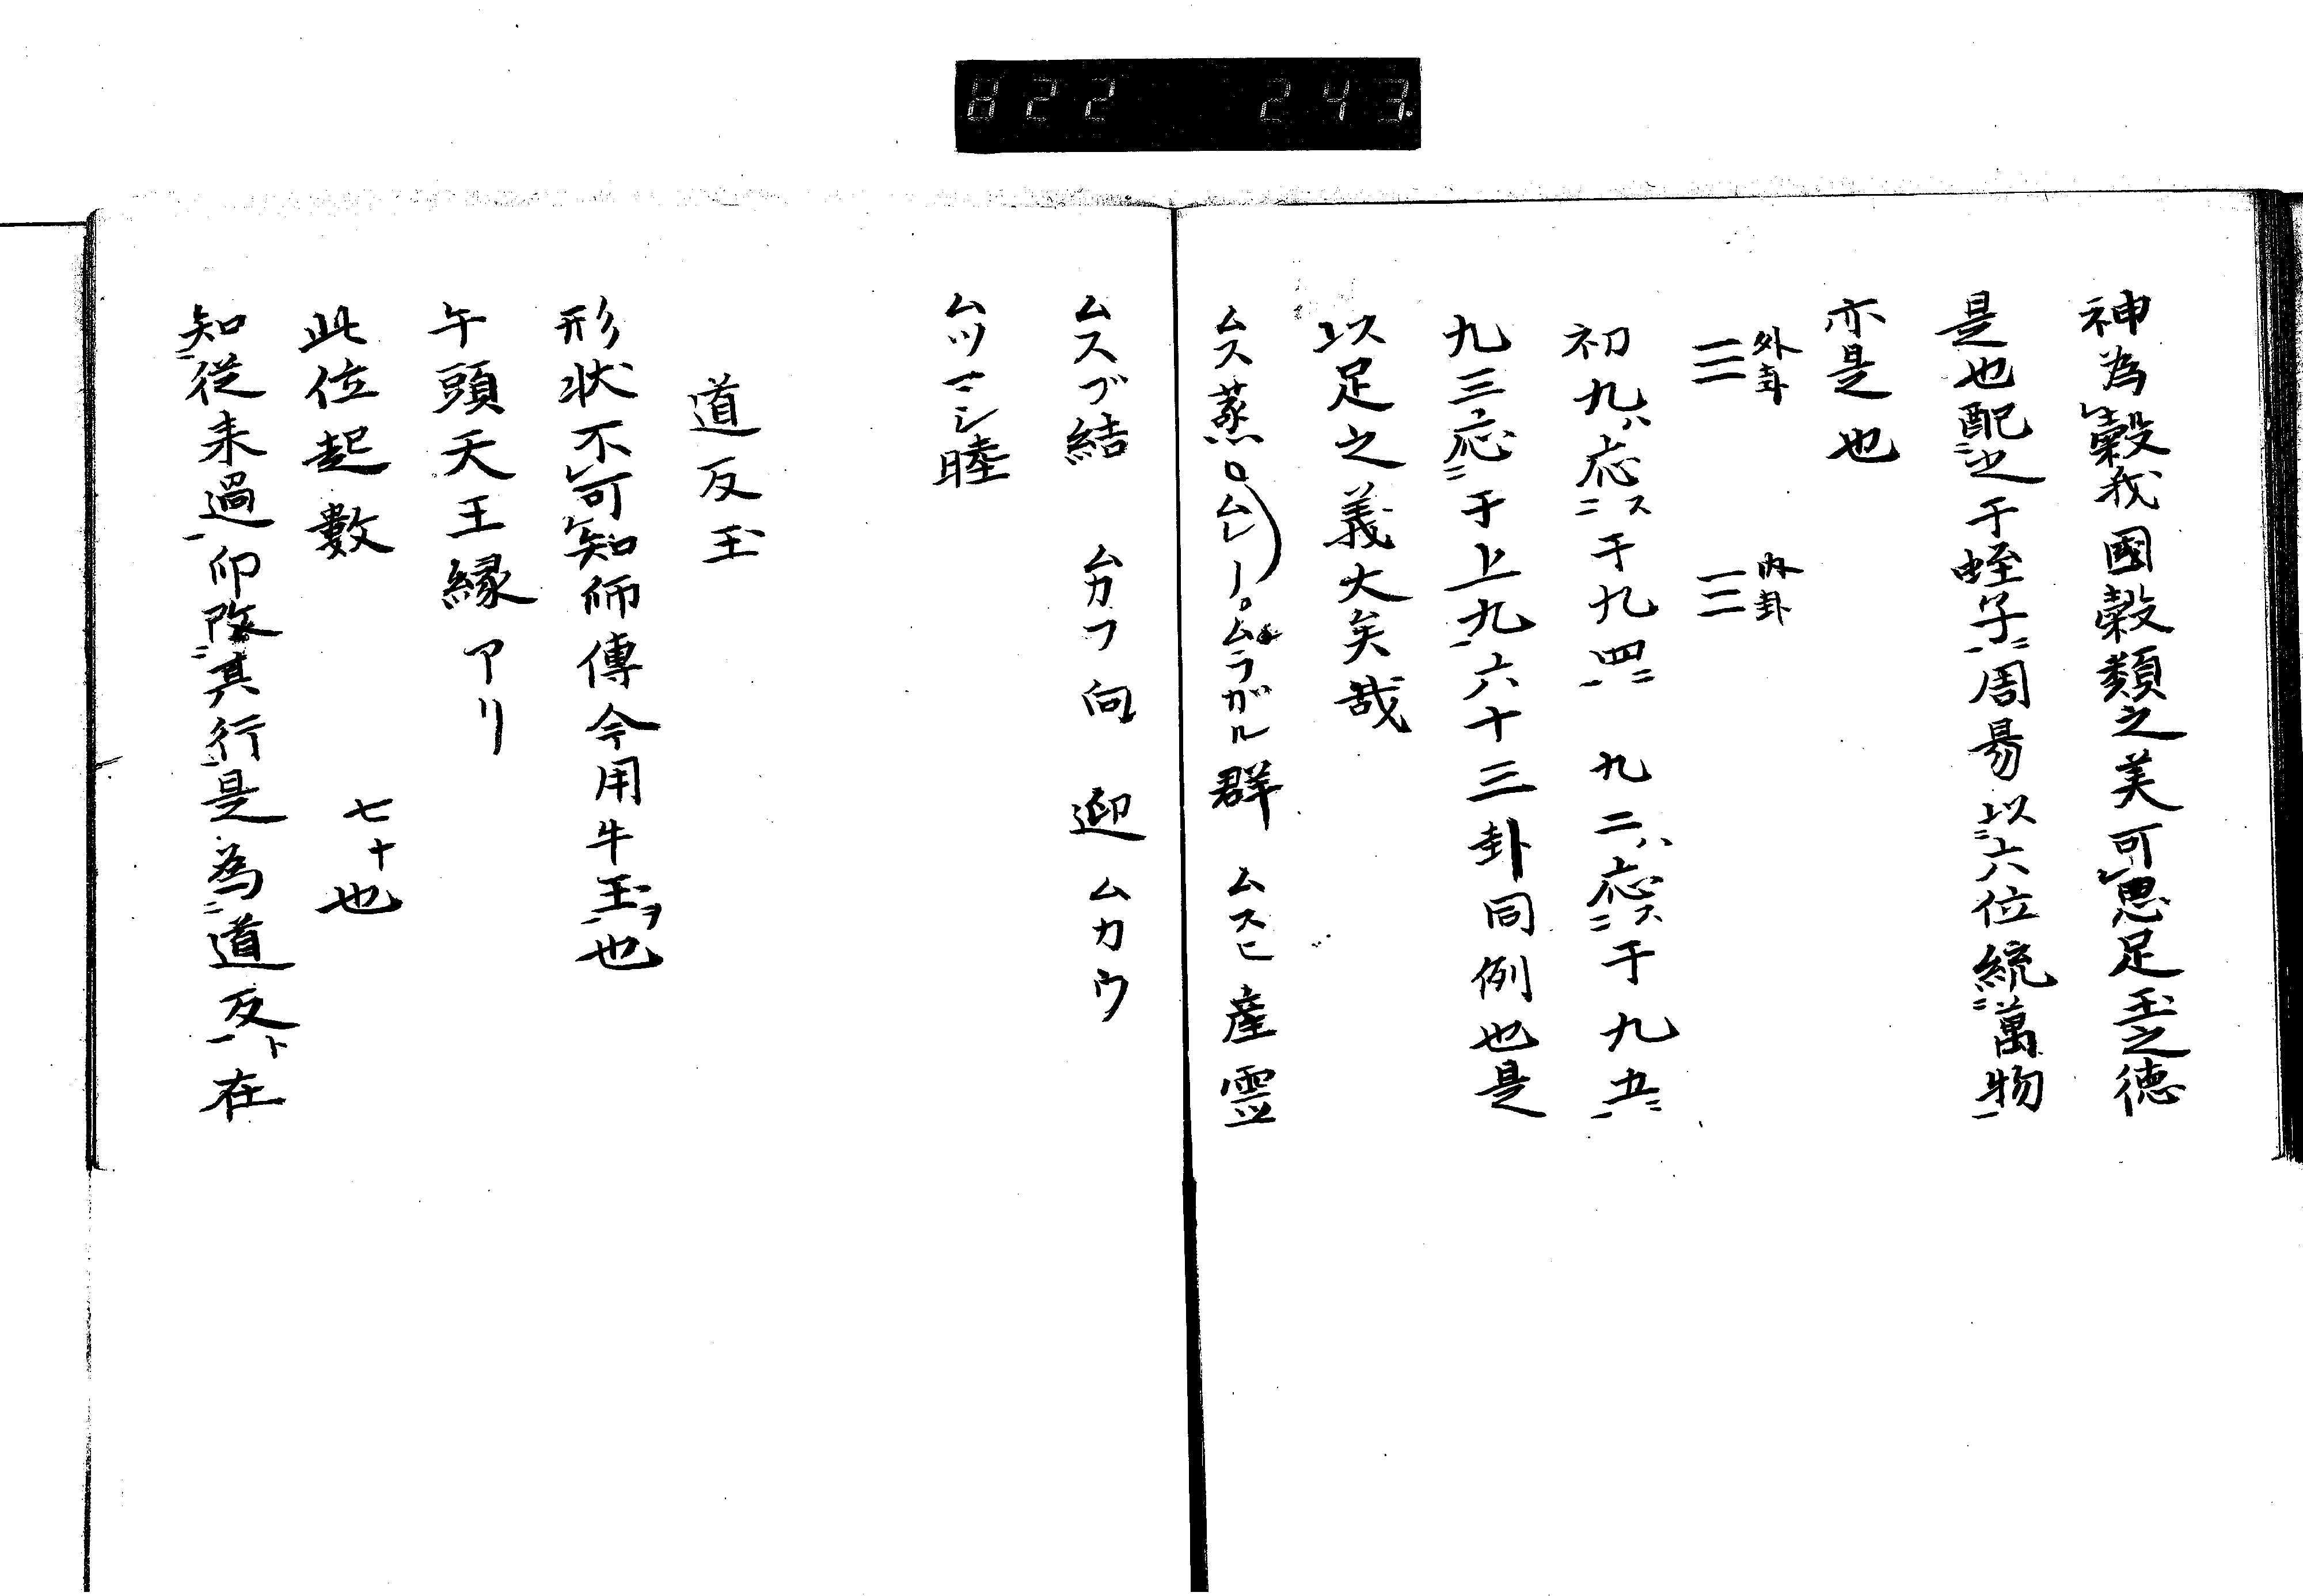 822 243
神為穀我國穀類之美可思足玉之徳
是也配之于蛭子周易以六位統萬物
亦是也
外卦 内卦
☰ ☰
初九ハ応ス于九四 九二ハ応ス于九五
九三応于上九六十三卦同例也是
以足之義大矣哉
ムス蒸 ムラガル群 ムスヒ産霊
ムスブ結 ムカフ向 迎ムカウ
ムツマシ睦
道反玉
形状不可知師傳今用牛玉ヲ也
午頭天王縁アリ
此位起數 七十也
知従来過即改其行是為道反ト在